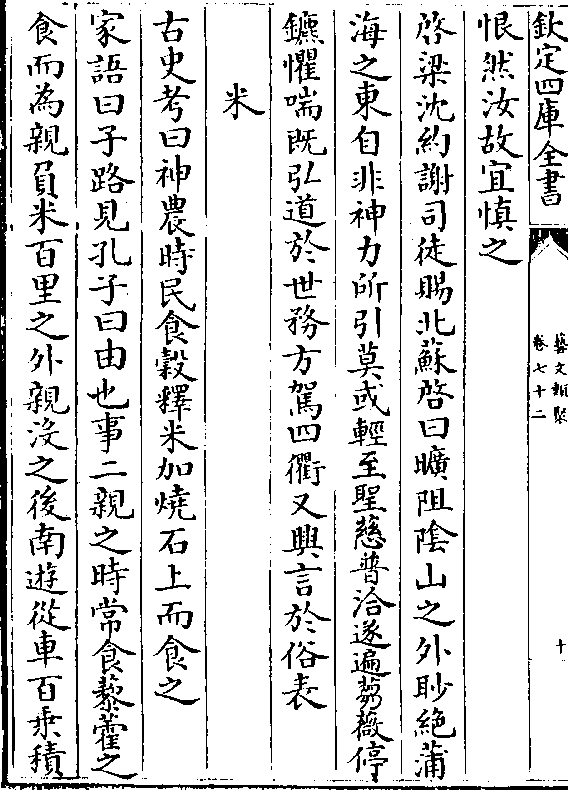 欽定四庫全書
藝文類聚
卷七十二
十
恨然汝故宜慎之
啓梁沈約謝司徒賜北蘇啓曰曠阻陰山之外眇絶蒲
海之東自非神力所引莫或輕至聖慈普洽遂遍蒭薇停
鑣懼喘既弘道於世務方駕四衢又興言於俗表
米
古史考曰神農時民食穀釋米加燒石上而食之
家語曰子路見孔子曰由也事二親之時常食藜藿之
食而為親負米百里之外親沒之後南遊從車百乗積